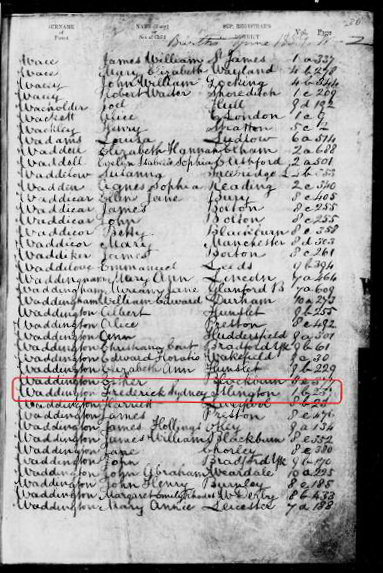 SURNAME of Parent NAME (if any) of Child SUP. REGISTRAR'S DISTRICT Vol. Page
Births
Wace James William St James 1 a 337
Wace Mary Elizabeth Wayland 4 b 298
Wacey John William
Wacey Robert Water Shoreditch 1 c 209
Wacholder Joel Hull 9 d 192
Wackett Alice London 1 c
Wackley Henry Stratton 5 c
Wadams Louisa Ludlow 6 a 574
Waddell Elizabeth Hannah 2 a 688
Waddell Evelyn Sophia Ashford 2 a 501
Waddelow Susanna Freebridge L
Wadden Agnes Sophia Reading 2 c 340
Waddicar Ellen Jane Bury 8 c 405
Waddicar James Bolton 8 c 255
Waddicar John Bolton 8 c 255
Waddicor Betty Blackburn 8 e 358
Waddicor Mary Manchester 8 d 303
Waddiker James Bolton 8 c 261
Waddilove Emmanuel Leeds 9 b 394
Mary Ann Lincoln 7 a 464
Waddingham Jane Glanford B 7 a 609
Waddingham William Edward Durham 10 a 273
Waddington Albert Hunslet 9 b 255
Waddington Alice Preston 8 e 492
Waddington Ann Huddersfield 9 a 301
Waddington Bradford Yk 9 b 61
Waddington Edward Horatio Wakefield 9 a 30
Waddington Elizabeth Ann Hunslet 9 b 229
Waddington Esther Blackburn 8 e
Waddington Frederick Sydney Islington 1 b
Waddington Harriett
Waddington James Preston 8 e
Waddington James Hollings Otley 9 a 134
Waddington James William Blackburn 8 e 352
Waddington Jane Chorley 8 e 380
Waddington John Bradford Yk 9 b 170
Waddington John Abraham Weardale 10 a 225
Waddington John Henry Burnley 8 e 185
Waddington Margaret Emily W. Derby 8 b 433
Waddington Mary Annie Leicester 7 a 188